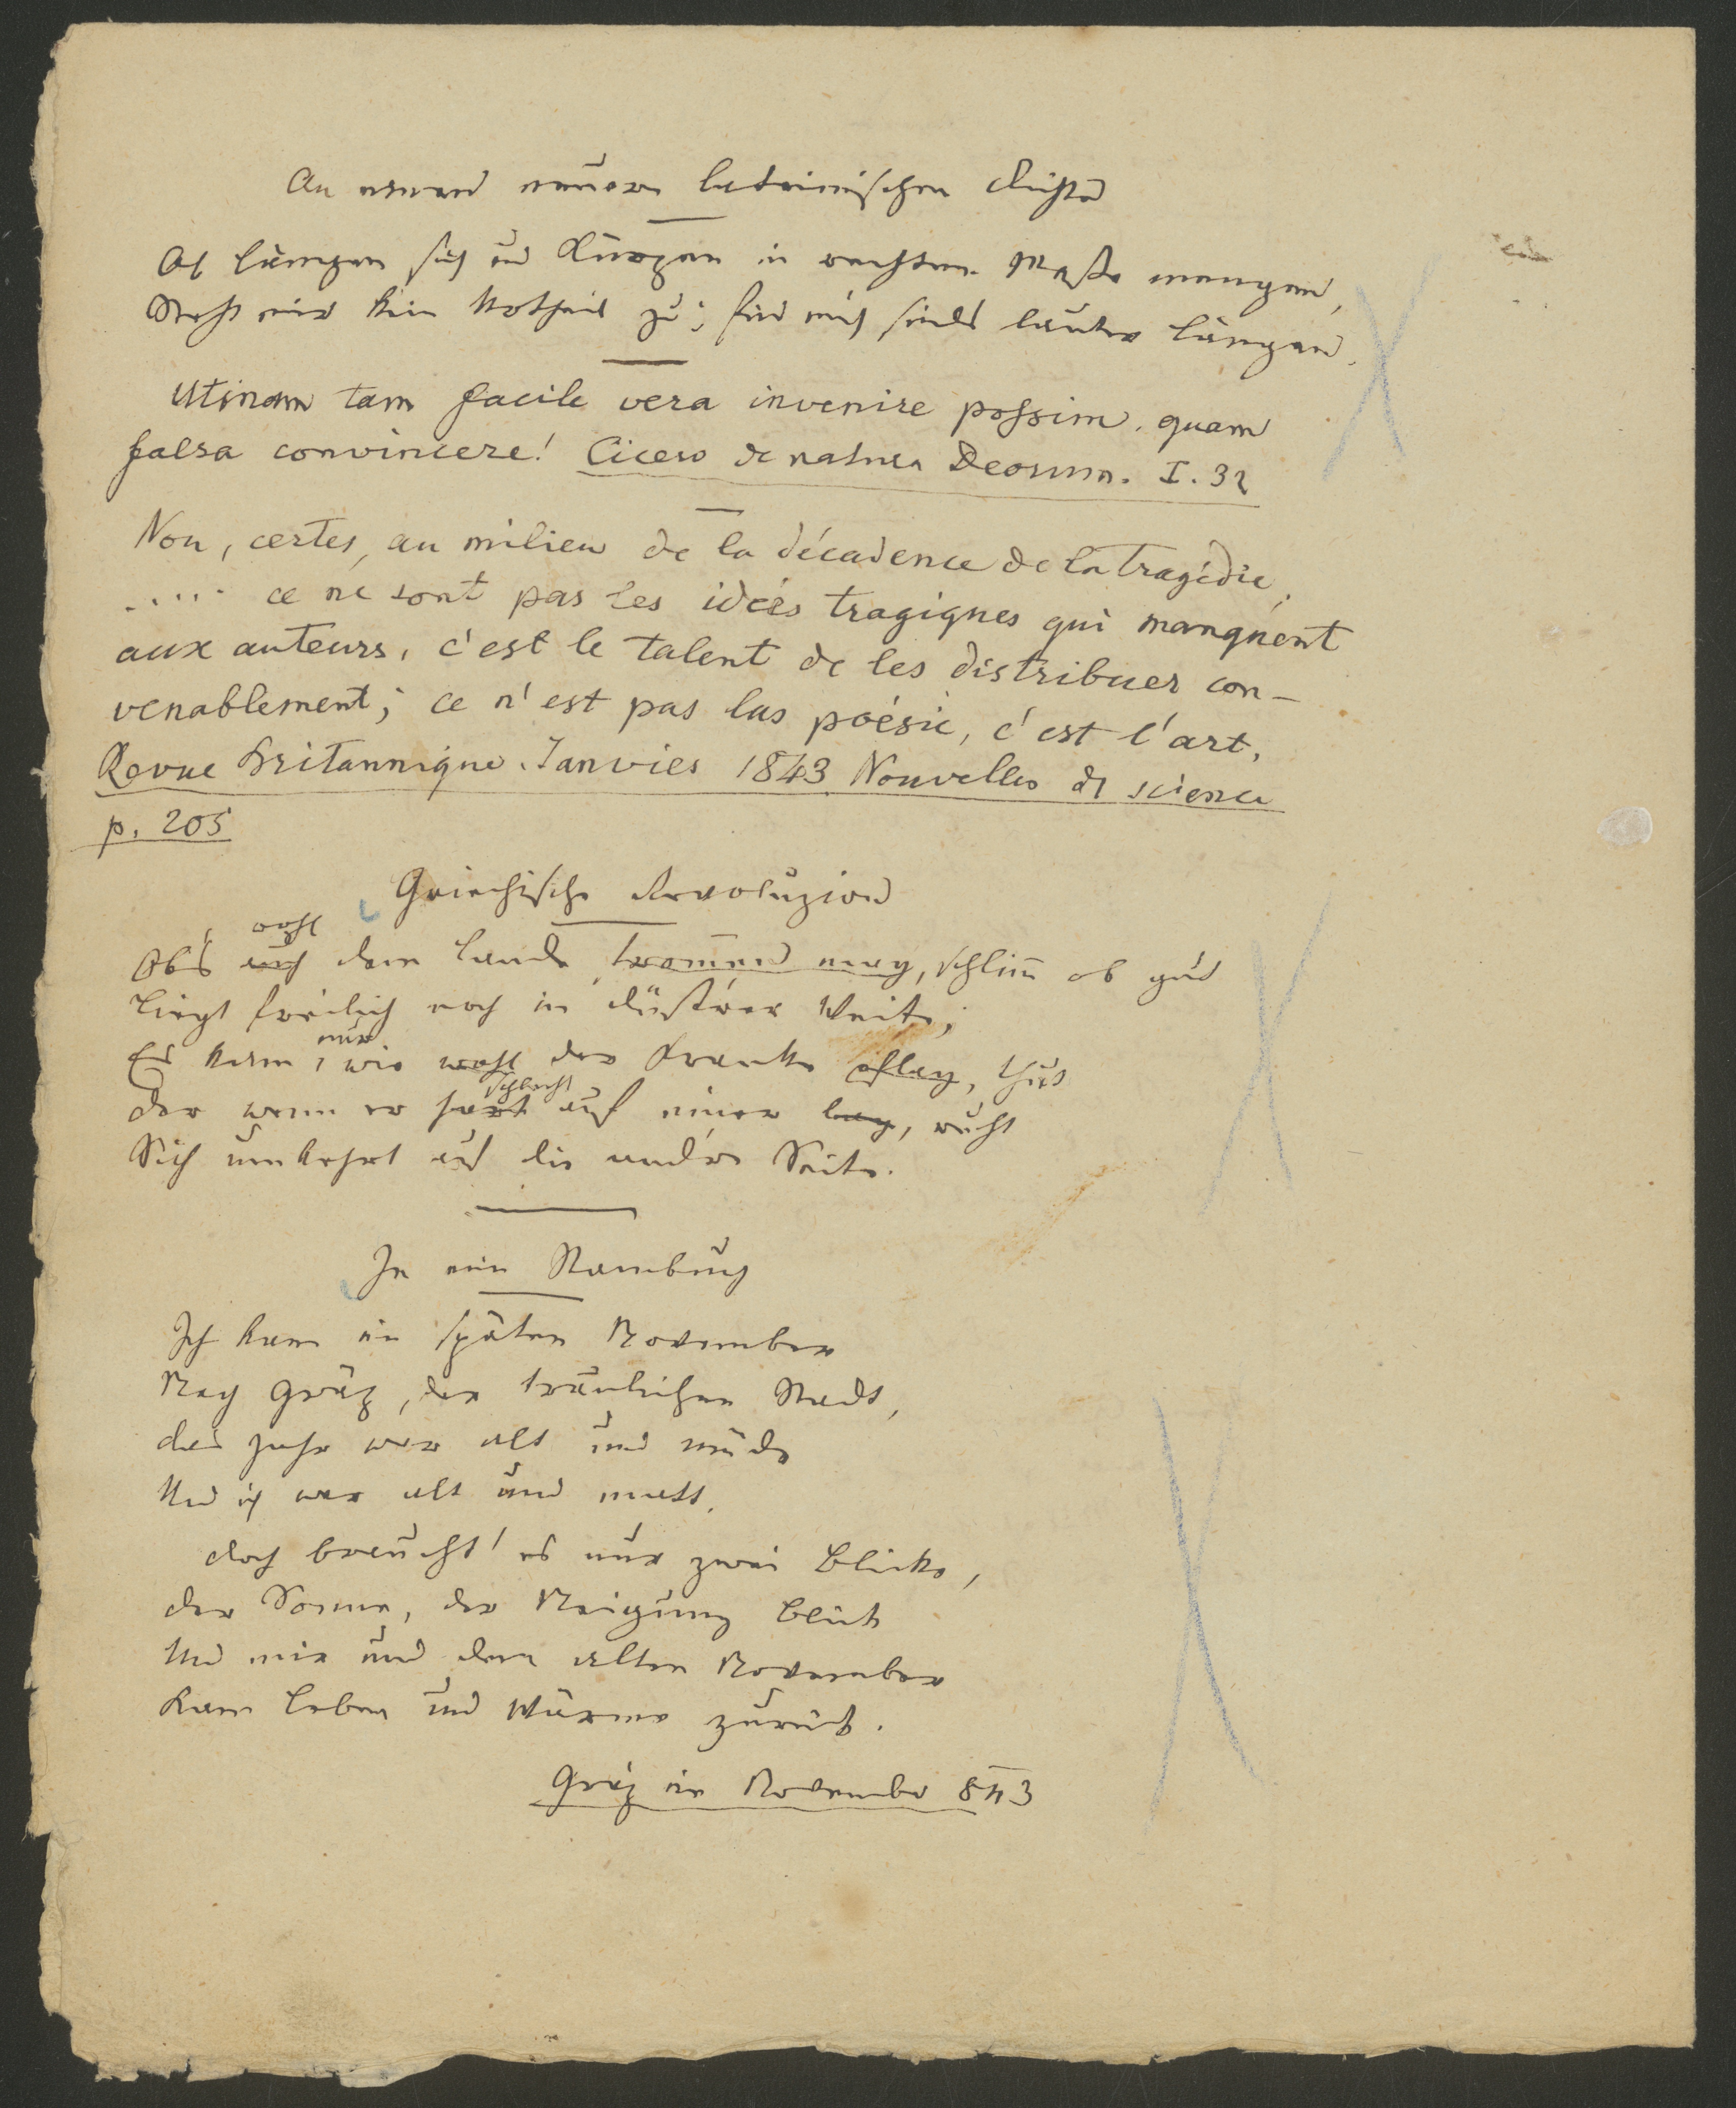 An einen neuern lateinischen Dichter
Ob Längen sich und Kürzen in rechtem Maße mengen,
Steht mir kein Urtheil zu; für mich sinds lauter Längen.
Utinam tam facile vera invenire possim, quam
falsa convincere! Cicero de natura Deorum. I. 32
Non, certes, au milieu de la décadence de la tragédie,
..... ce ne sont pas les idées tragiques qui manquent
aux auteurs, c'est le talent de les distribuer con-
venablement; ce n'est pas las poésie, c'est l'art.
Revue britannique. Janvier 1843 Nouvelles de science
p. 205
Griechische Revoluzion
wohl
Ob's auch dem Lande frommen mag, schlimm ob gut
Liegt freilich noch in düst'rer Weite;
nur
Es kam, wie wohl der Kranke pflag, thut
schlecht
Der wenn er hart auf einer lag, ruht
Sich umkehrt auf die andre Seite.
In ein Stammbuch
Ich kam im späten November
Nach Grätz, der traulichen Stadt,
Das Jahr war alt und müde
Und ich war alt und matt.
Doch braucht' es nur zwei Blicke,
Der Sonne, der Neigung Blick
Und mir und dem alten November
Kam Leben und Wärme zurück.
Grätz im November 843